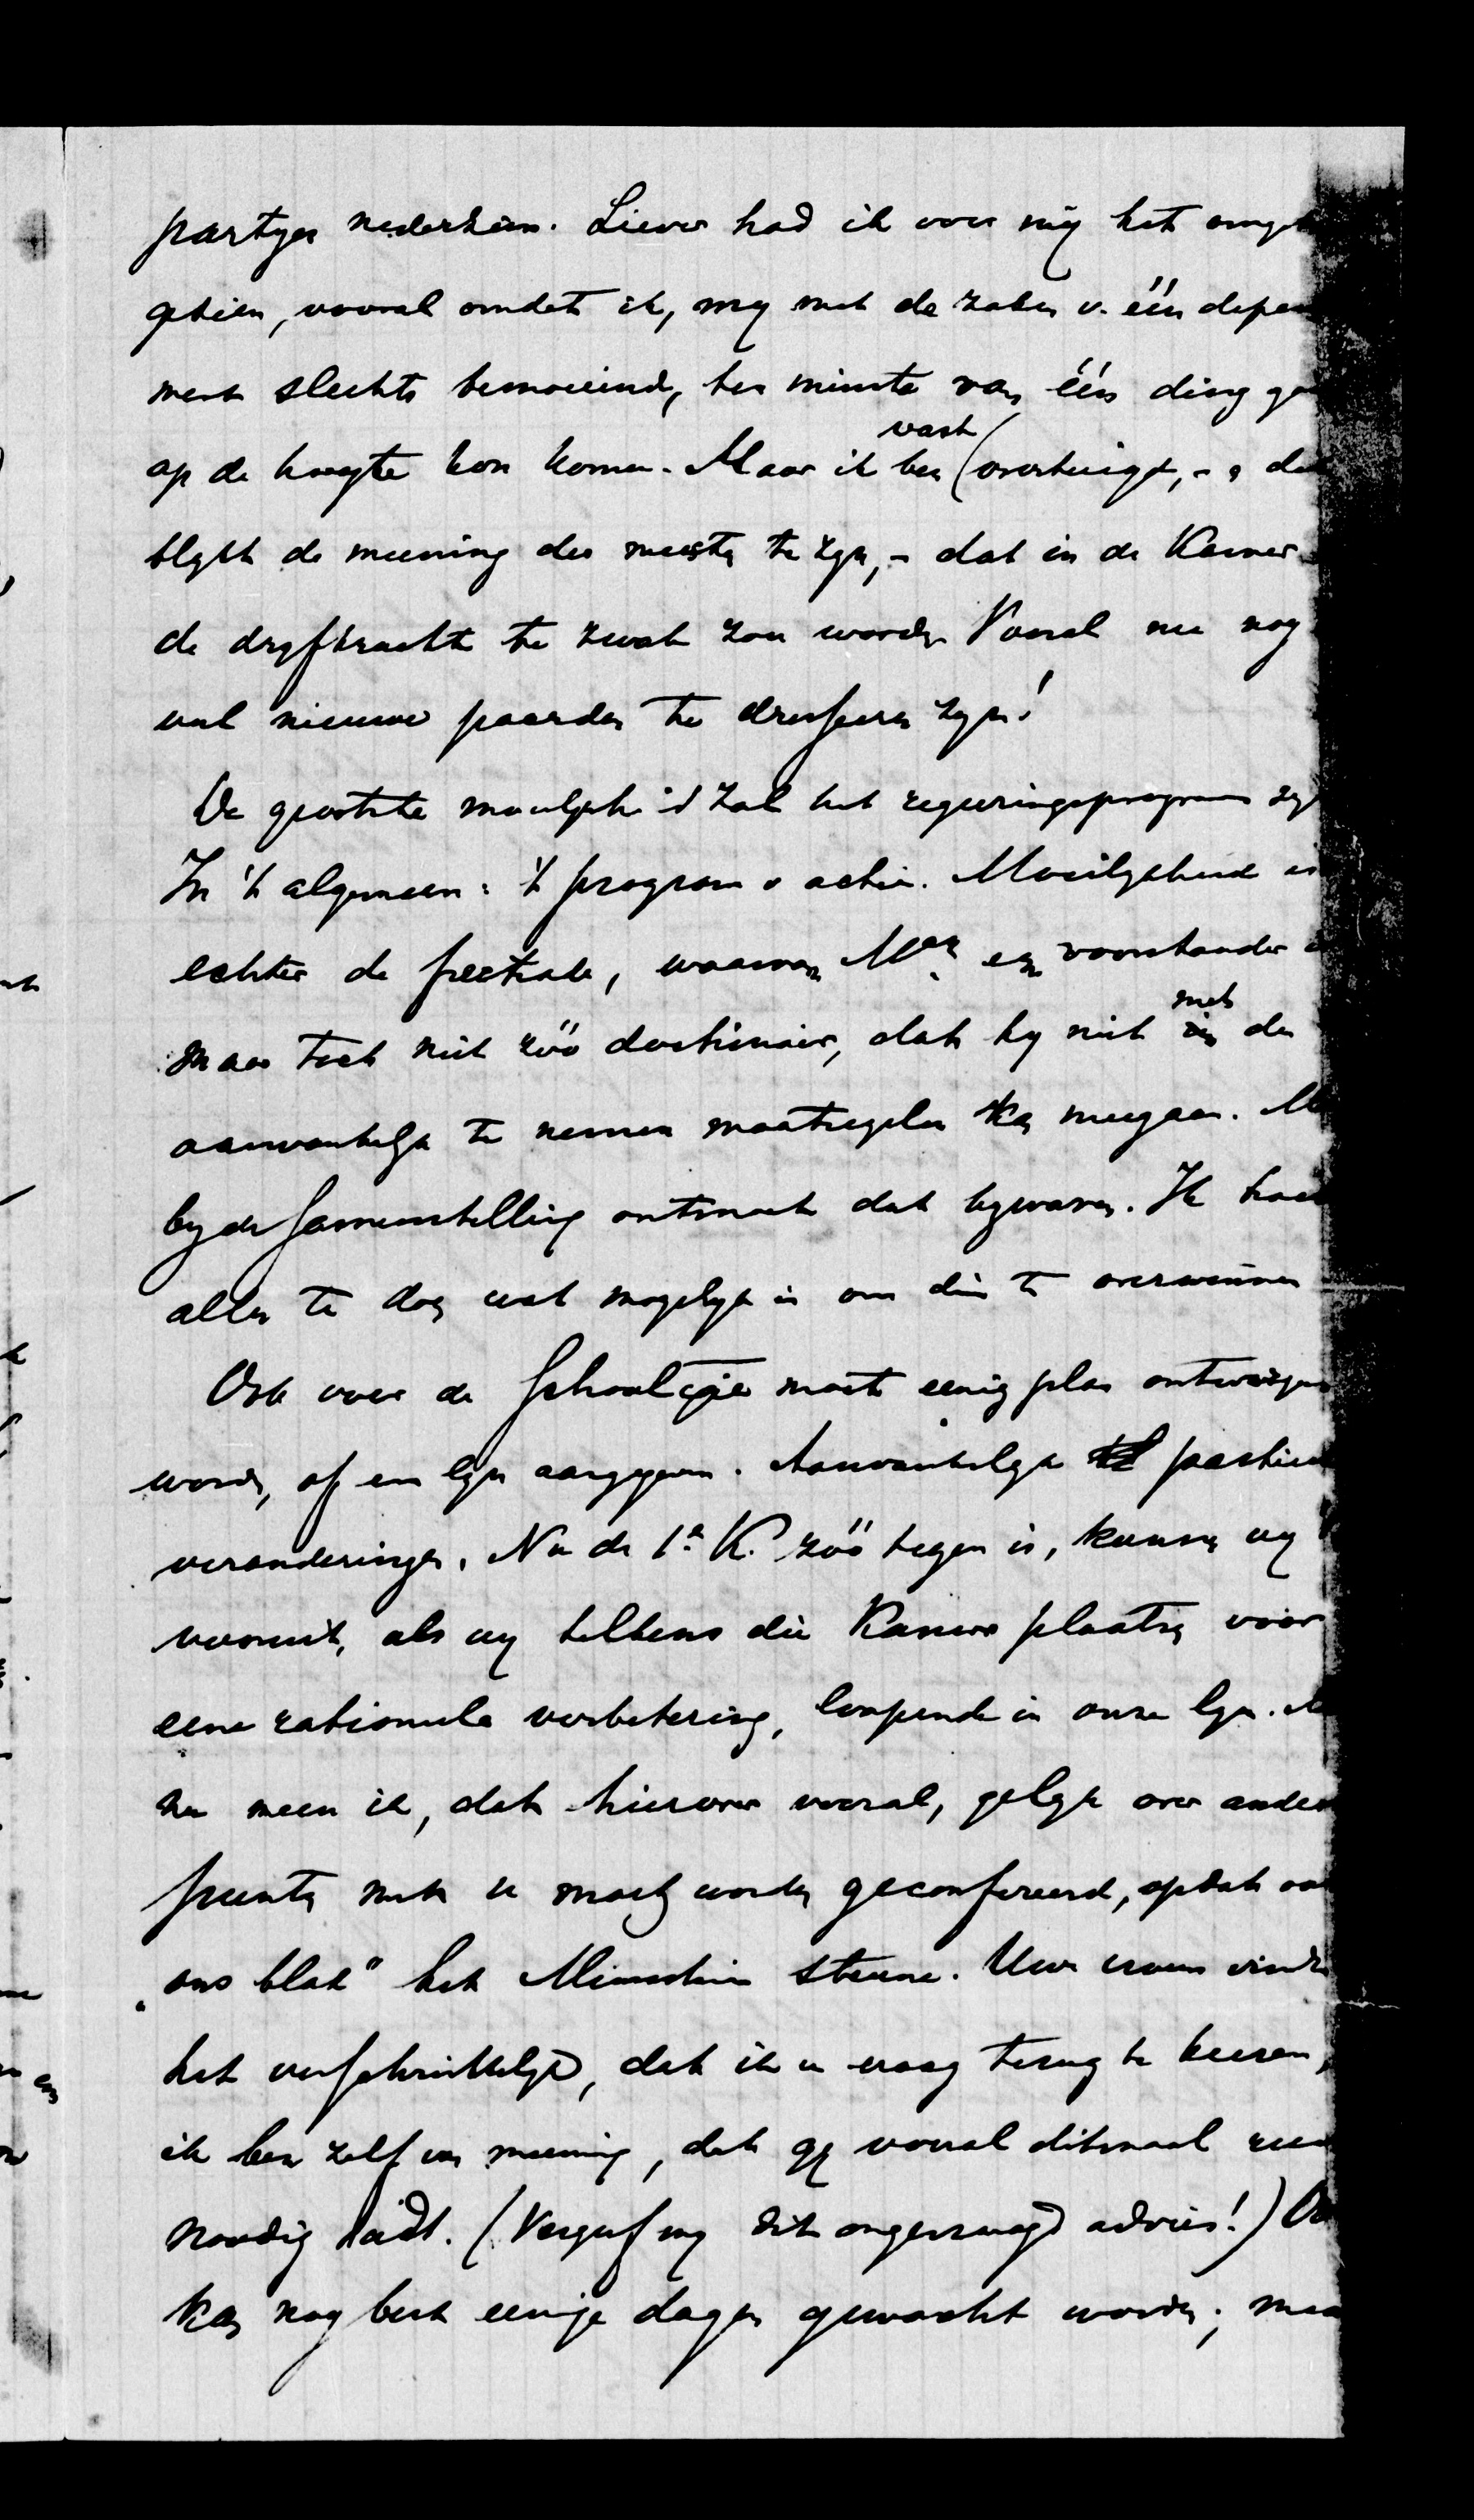 partyen nederleen. Liever had ik voor my het omge
gezien, vooral omdat ik, my met de zaken v. één depar
ment slechts bemoeiend, ten minste van één ding goe
op de hoogte kon komen. Maar ik ben vast overtuigd, - & dat
blykt de meening der meesten te zyn, - dat in de Kamer
de dryfkracht te zwak zou worden Vooral nu nog
veel nieuwe paarden te dresseren zyn!
De grootste moeilykheid zal het regeeringsprogram zyn
In 't algemeen: 't program v actie. Moeilykheid is
echter de , waarvan M een voorstander is
maar toch niet zóó doctrinair, dat hy niet met de
aanvankelyk te nemen maatregelen kan meegaan. M
by de samenstelling ontmoet dat bezwaren. Ik hoop
alles te doen wat mogelyk is om die te overwinnen
Ook voor de Schoolqie moet eenig plan ontworpen
worden, of een lyn aangegeven. Aanvankelyk partieele
veranderingen. Nu de 1e K. zóó tegen is, kunnen wy
vooruit, als wy telkens die Kamer plaatsen voor
eene rationeele verbetering, loopende in onze lyn.
nu meen ik, dat hierover vooral, gelyk over andere
punten met u moet worden geconfereerd, opdat ook
"ons blad" het Ministerie steune. Uwe vrouw vindt
het verschrikkelyk, dat ik u vraag terug te keeren,
ik ben zelf van meening, dat gy vooral ditmaal rust
noodig hadt. (Vergeef my dit ongevraagd advies!) Oo
kan nog best eenige dagen gewacht worden; maa